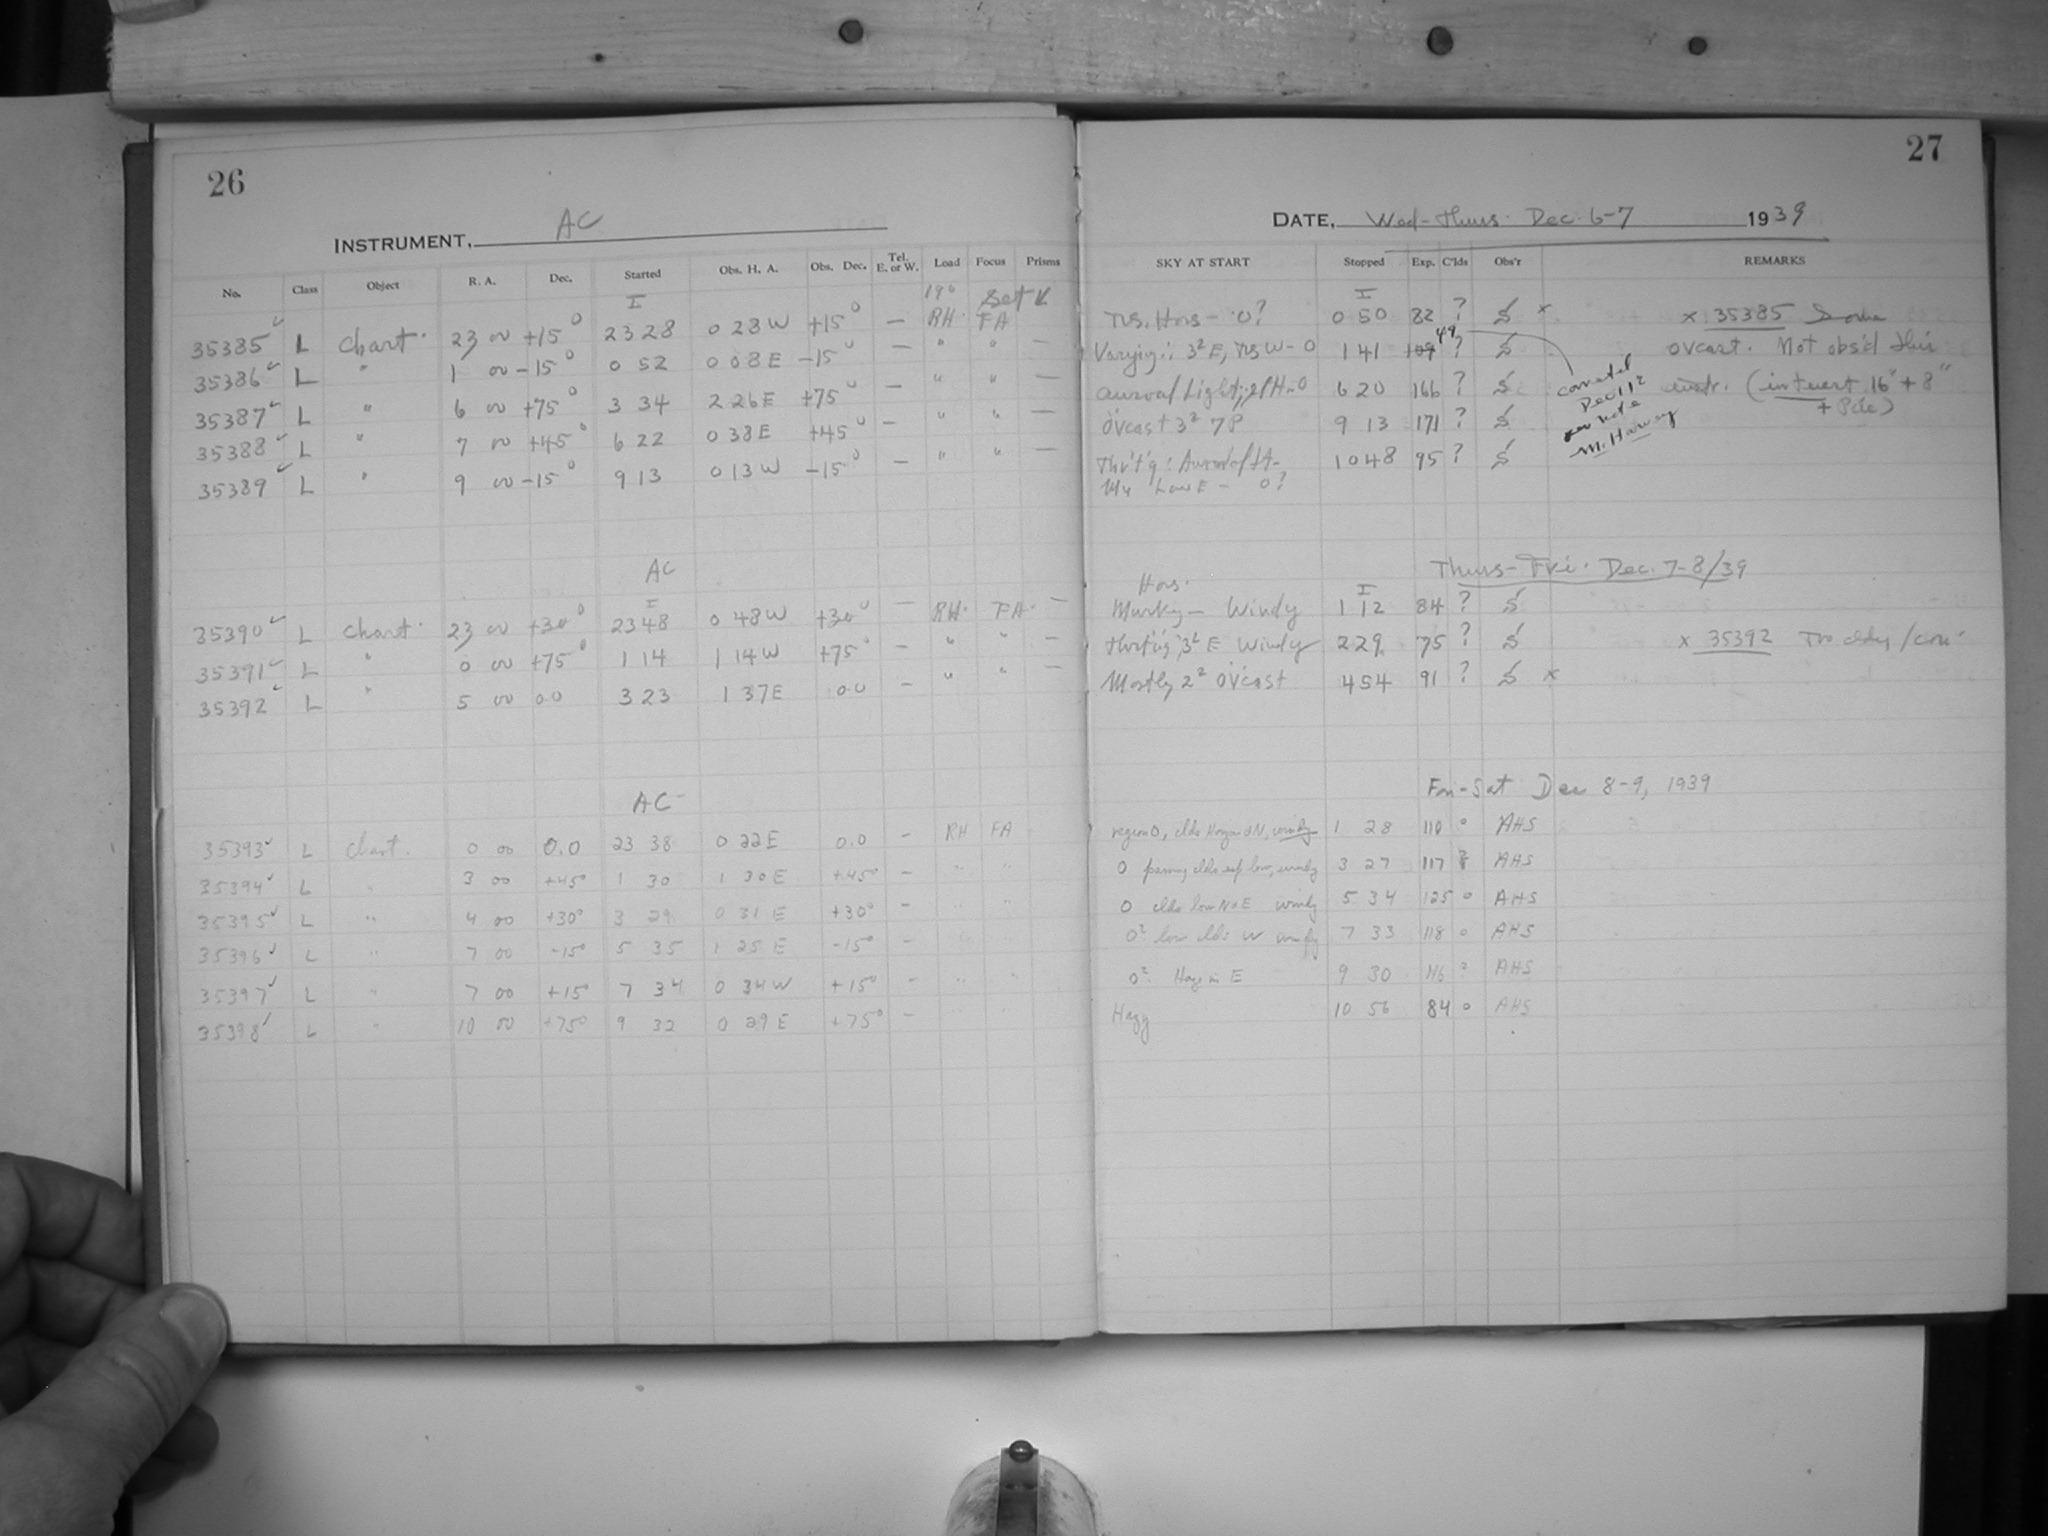 26
INSTRUMENT, AC
No. Class Object R. A. Dec. Started Obs. H. A. Obs. Dec. Tel. E. or W. Load Focus Prisms
I Set
35385 L Chart 23 00 +15° 23 28 0 28 W +15° — RH FA
35386 L " 1 00 -15° 0 52 0 08 E -15° — " " —
35387 L " 6 00 +75° 3 34 2 26 E +75° — " " —
35388 L " 7 00 +45° 6 22 0 38 E +45° — " " —
35389 L " 9 00 -15° 9 13 0 13 W -15° — " " —
AC
I
35390 L Chart 23 00 +30° 23 48 0 48 W +30° — RH FA —
35391 L " 0 00 +75° 1 14 1 14 W +75° — " " —
35392 L " 5 00 0.0 3 23 1 37 E 0.0 — " " —
AC
35393 L Chart 0 00 0.0 23 38 0 22 E 0.0 — RH FA
35394 L " 3 00 +45° 1 30 1 30 E +45° — " "
35395 L " 4 00 +30° 3 29 0 31 E +30° — " "
35396 L " 7 00 -15° 5 35 1 25 E -15° —
35397 L " 7 00 +15° 7 34 0 34 W +15° — " "
35398 L " 10 00 +75° 9 32 0 29 E +75° —
27
DATE, Wed-Thurs. Dec. 6-7 1939
SKY AT START Stopped Exp. C'lds Obs'r REMARKS
I
0 50 82 ? x x 35385
Varying: 3² E, W-0 1 41 109 49 ? ovcast. Not obs'd this
Auroral Light; 0 6 20 166 ? instr. (intuert 16" + 8"
+ Pole)
corrected
Dec 11
note
M. Harvey
ovcast 3² 7P 9 13 171 ?
10 48 95 ?
Low E - 0?
Thurs-Fri. Dec. 7-8/39
Hors.
I
Murky — Windy 1 12 84 ?
3² E Windy 2 29 75 ? x 35392 Too cldy/
Mostly 2² ovcast 4 54 91 ? x
Fri-Sat Dec 8-9, 1939
region 0, clds Horizon N, windy 1 28 110 0 AHS
0 passing clds esp low, windy 3 27 117 ? AHS
0 clds low N & E windy 5 34 125 0 AHS
0² low clds W windy 7 33 118 0 AHS
0² Haze in E 9 30 116 ? AHS
Hazy 10 56 84 0 AHS